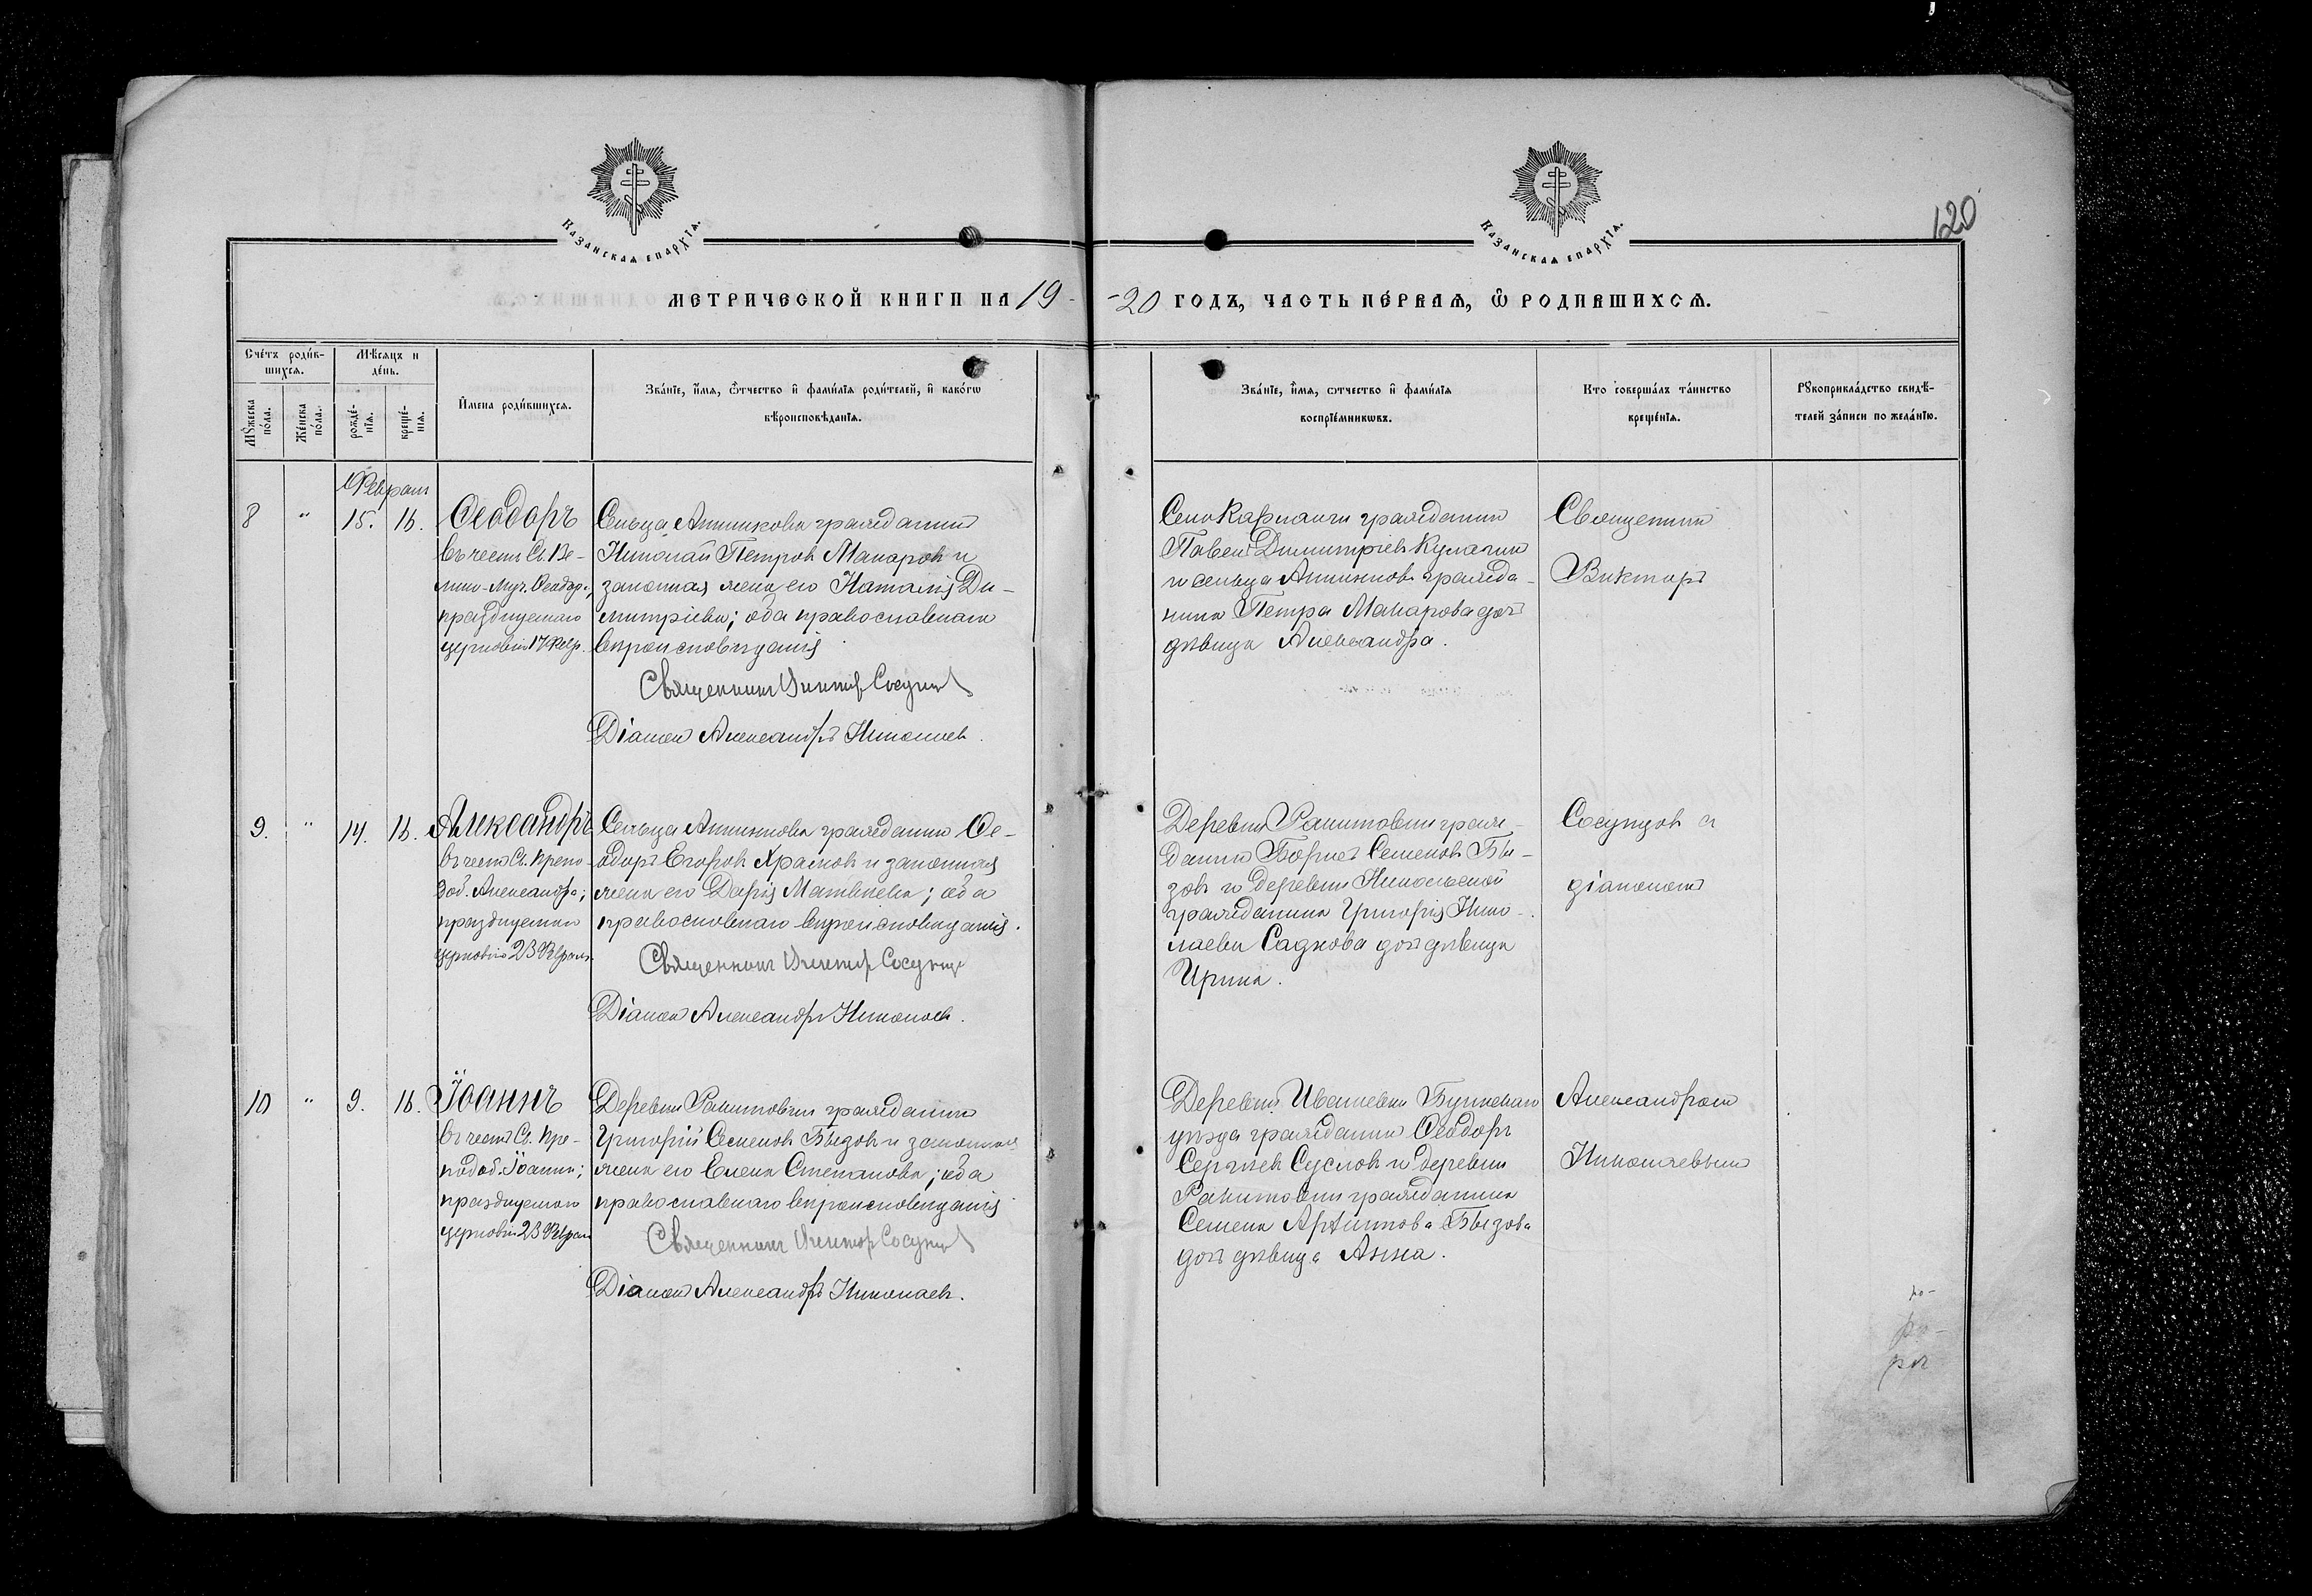 Казанская епархїя.
Казанская епархїя.
120
МЕТРИЧЕСКОЙ КНИГИ НА 19-
-20 ГОДЪ, ЧАСТЬ ПЕ́РВАЯ, Ѿ РОДИВШИХСЯ.
Сче́тъ роди́в-
шихся.
Мѣ́сяцъ и
де́нь.
Мꙋ́жеска
по́ла.
Же́нска
по́ла.
рожде́-
нїя.
креще́-
нїя.
И́мена роди́вшихся.
Зва́нїе, и́мя, ѻ́тчество и фами́лїя роди́телей, и како́гѡ
вѣроисповѣ́данїя.
Зва́нїе, и́мя, ѻтчество и фами́лїя
воспрїе́мникѡвъ.
Кто соверша́лъ та́инство
креще́нїя.
Рꙋкоприкла́дство свидѣ́-
телей за́писи по жела́нїю.
Февраль
8 " 15. 16. Ѳеодоръ
въ честь Св. Ве-
лико-муч. Ѳеодора,
празднуемаго
церковію 17 Февр.
Сельца Аникеевки гражданинъ
Николай Петровъ Макаровъ и
законная жена его Наталія Ди-
митріева; оба православнаго
вѣроисповѣданія
Священникъ Викторъ Сосунцов
Діаконъ Александръ Николаевъ.
Села Карланги гражданинъ
Павелъ Димитріевъ Кулагинъ
и сельца гражда-
нина Петра Макарова дочь
дѣвица Александра.
Священникъ
Викторъ
9. " 14. 16. Александръ
въ честь Св. Препо-
доб. Александра;
празднуемаго
церковію 23 Февраля
Сельца гражданинъ Ѳе-
одоръ Егоровъ Храмовъ и законная
жена его Дарія Матвѣева; оба
православнаго вѣроисповѣданія.
Священникъ Викторъ Сосунцов
Діаконъ Александръ Николаевъ.
Деревни Ракитовки граж-
данинъ Борисъ Семеновъ Бы-
зовъ и деревни Никольской
гражданина Григорія Нико-
лаева Садкова дочь дѣвица
Ирина.
Сосунцовъ съ
діакономъ
10 " 9. 16. Їоаннъ
въ честь Св. Пре-
подоб. Їоанна;
празднуемаго
церковію 23 Февраля
Деревни Ракитовки гражданинъ
Григорій Семеновъ Бызовъ и законная
жена его Елена Степанова; оба
православнаго вѣроисповѣданія
Священникъ Викторъ Сосунцов
Діаконъ Александръ Николаевъ.
Деревни Ивашевки Буинскаго
уѣзда гражданинъ Ѳеодоръ
Сергѣевъ Сусловъ и деревни
Ракитовки гражданина
Семена Архипова Бызова
дочь дѣвица Анна.
Александромъ
Николаевымъ